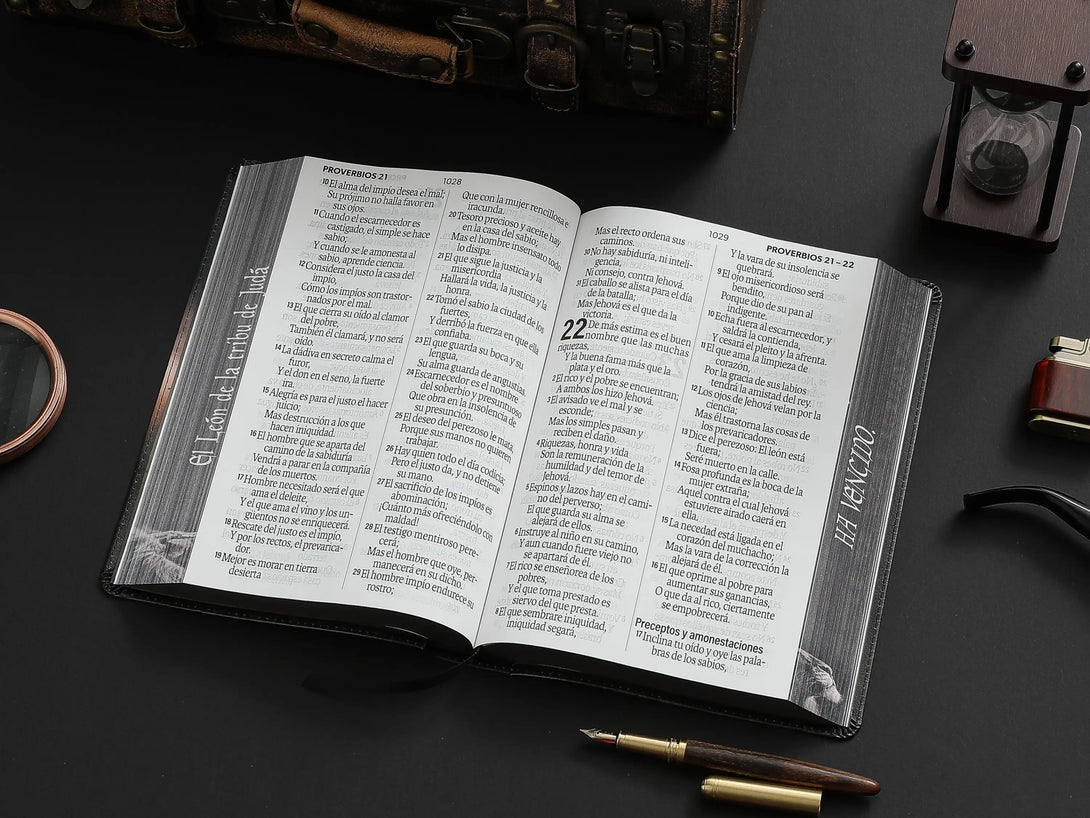 El León de la tribu de Judá
PROVERBIOS 21
1028
10 El alma del impío desea el mal;
Su prójimo no halla favor en
sus ojos.
11 Cuando el escarnecedor es
castigado, el simple se hace
sabio;
Y cuando se le amonesta al
sabio, aprende ciencia.
12 Considera el justo la casa del
impío,
Cómo los impíos son trastor-
nados por el mal.
13 El que cierra su oído al clamor
del pobre,
También él clamará, y no será
oído.
14 La dádiva en secreto calma el
furor,
Y el don en el seno, la fuerte
ira.
15 Alegría es para el justo el hacer
juicio;
Mas destrucción a los que
hacen iniquidad.
16 El hombre que se aparta del
camino de la sabiduría
Vendrá a parar en la compañía
de los muertos.
17 Hombre necesitado será el que
ama el deleite,
Y el que ama el vino y los un-
güentos no se enriquecerá.
18 Rescate del justo es el impío,
Y por los rectos, el prevarica-
dor.
19 Mejor es morar en tierra
desierta
Que con la mujer rencillosa e
iracunda.
20 Tesoro precioso y aceite hay
en la casa del sabio;
Mas el hombre insensato todo
lo disipa.
21 El que sigue la justicia y la
misericordia
Hallará la vida, la justicia y la
honra.
22 Tomó el sabio la ciudad de los
fuertes,
Y derribó la fuerza en que ella
confiaba.
23 El que guarda su boca y su
lengua,
Su alma guarda de angustias.
24 Escarnecedor es el nombre
del soberbio y presuntuoso
Que obra en la insolencia de
su presunción.
25 El deseo del perezoso le mata,
Porque sus manos no quieren
trabajar.
26 Hay quien todo el día codicia;
Pero el justo da, y no detiene
su mano.
27 El sacrificio de los impíos es
abominación;
¡Cuánto más ofreciéndolo con
maldad!
28 El testigo mentiroso pere-
cerá;
Mas el hombre que oye, per-
manecerá en su dicho.
29 El hombre impío endurece su
rostro;
1029
PROVERBIOS 21 – 22
Mas el recto ordena sus
caminos.
30 No hay sabiduría, ni inteli-
gencia,
Ni consejo, contra Jehová.
31 El caballo se alista para el día
de la batalla;
Mas Jehová es el que da la
victoria.
22 De más estima es el buen
nombre que las muchas
riquezas,
Y la buena fama más que la
plata y el oro.
2 El rico y el pobre se encuentran;
A ambos los hizo Jehová.
3 El avisado ve el mal y se
esconde;
Mas los simples pasan y
reciben el daño.
4 Riquezas, honra y vida
Son la remuneración de la
humildad y del temor de
Jehová.
5 Espinos y lazos hay en el cami-
no del perverso;
El que guarda su alma se
alejará de ellos.
6 Instruye al niño en su camino,
Y aun cuando fuere viejo no
se apartará de él.
7 El rico se enseñorea de los
pobres,
Y el que toma prestado es
siervo del que presta.
8 El que sembrare iniquidad,
iniquidad segará,
Y la vara de su insolencia se
quebrará.
9 El ojo misericordioso será
bendito,
Porque dio de su pan al
indigente.
10 Echa fuera al escarnecedor, y
saldrá la contienda,
Y cesará el pleito y la afrenta.
11 El que ama la limpieza de
corazón,
Por la gracia de sus labios
tendrá la amistad del rey.
12 Los ojos de Jehová velan por la
ciencia;
Mas él trastorna las cosas de
los prevaricadores.
13 Dice el perezoso: El león está
fuera;
Seré muerto en la calle.
14 Fosa profunda es la boca de la
mujer extraña;
Aquel contra el cual Jehová
estuviere airado caerá en
ella.
15 La necedad está ligada en el
corazón del muchacho;
Mas la vara de la corrección la
alejará de él.
16 El que oprime al pobre para
aumentar sus ganancias,
O que da al rico, ciertamente
se empobrecerá.
Preceptos y amonestaciones
17 Inclina tu oído y oye las pala-
bras de los sabios,
HA VENCIDO.